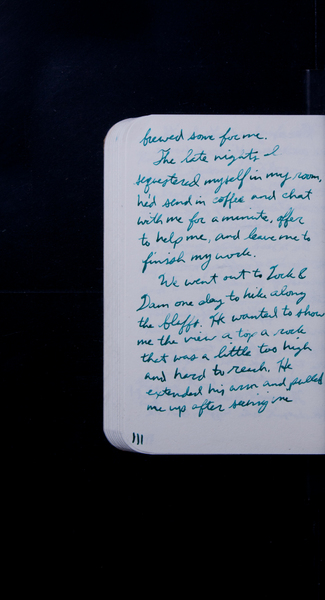 brewed some for me.
The late nights I
sequestered myself in my room,
he'd send in coffee and chat
with me for a minute, offer
to help me, and leave me to
finish my work.
We went out to Lock &
Dam one day to hike along
the bluffs. He wanted to show
me the view a top a rock
that was a little too high
and hard to reach. He
extended his arm and pulled
me up after seeing me
111